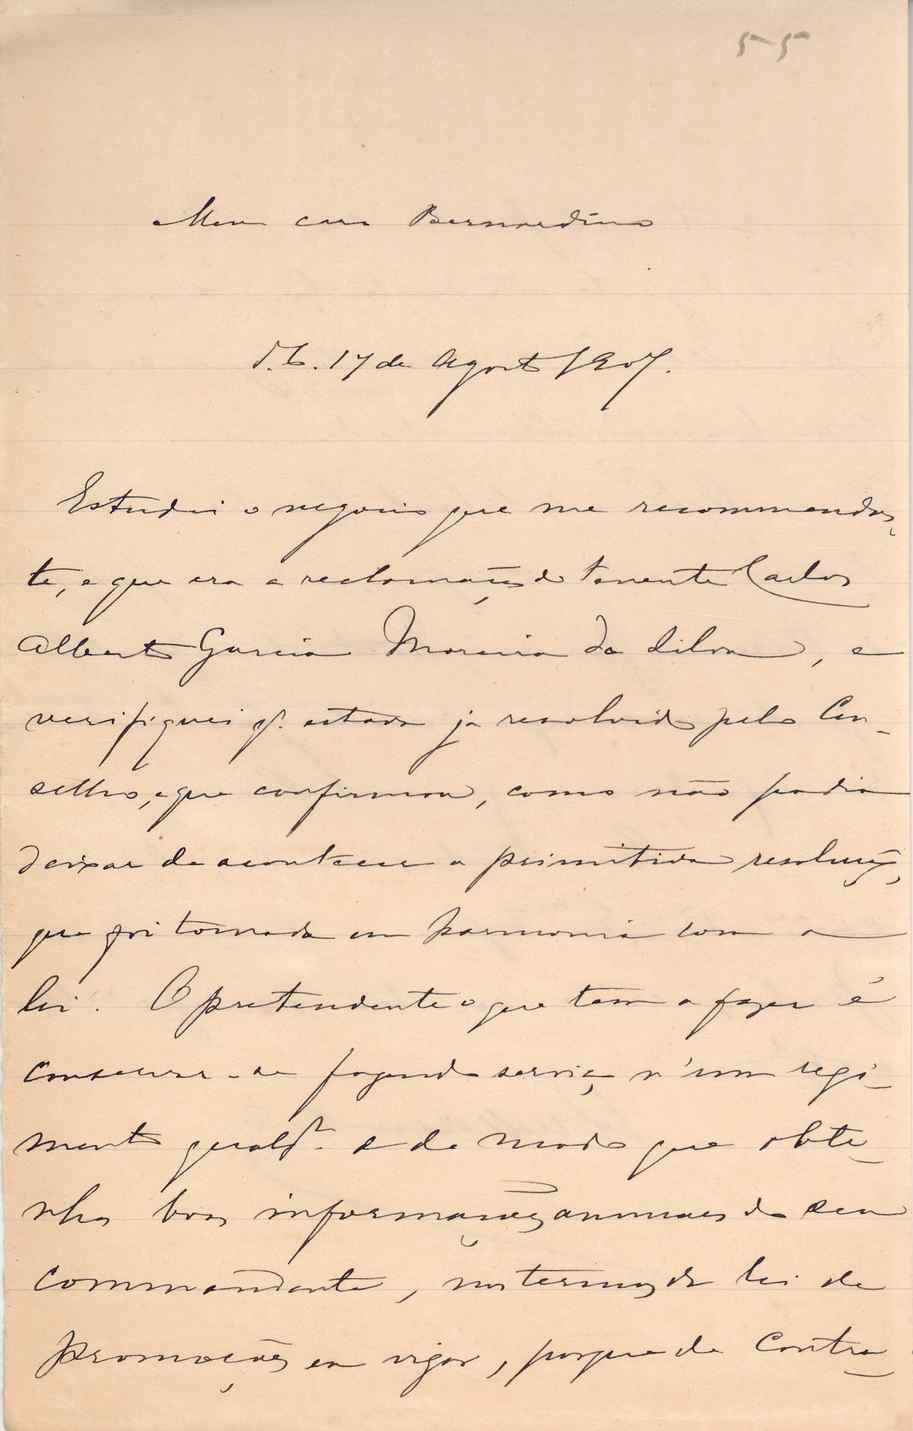 55
Meu caro Bernardino
17 de Agosto 1907.
Estudei o negocio que me recommendas-
te, e que era a reclamação do tenente Carlos
Alberto Garcia Moreira da Silva, e
verifiquei q. estava já resolvido pelo Con-
selho, e que confirmou, como não podia
deixar de acontecer a primitiva resolução,
que foi tomada em harmonia com a
lei. O pretendente o que tem a fazer é
conservar-se fazendo serviço n'um regi-
mento e de modo que obte-
nha boas informações annuaes do seu
commandante, nos termos da lei de
promoções em vigor, porque do contra-